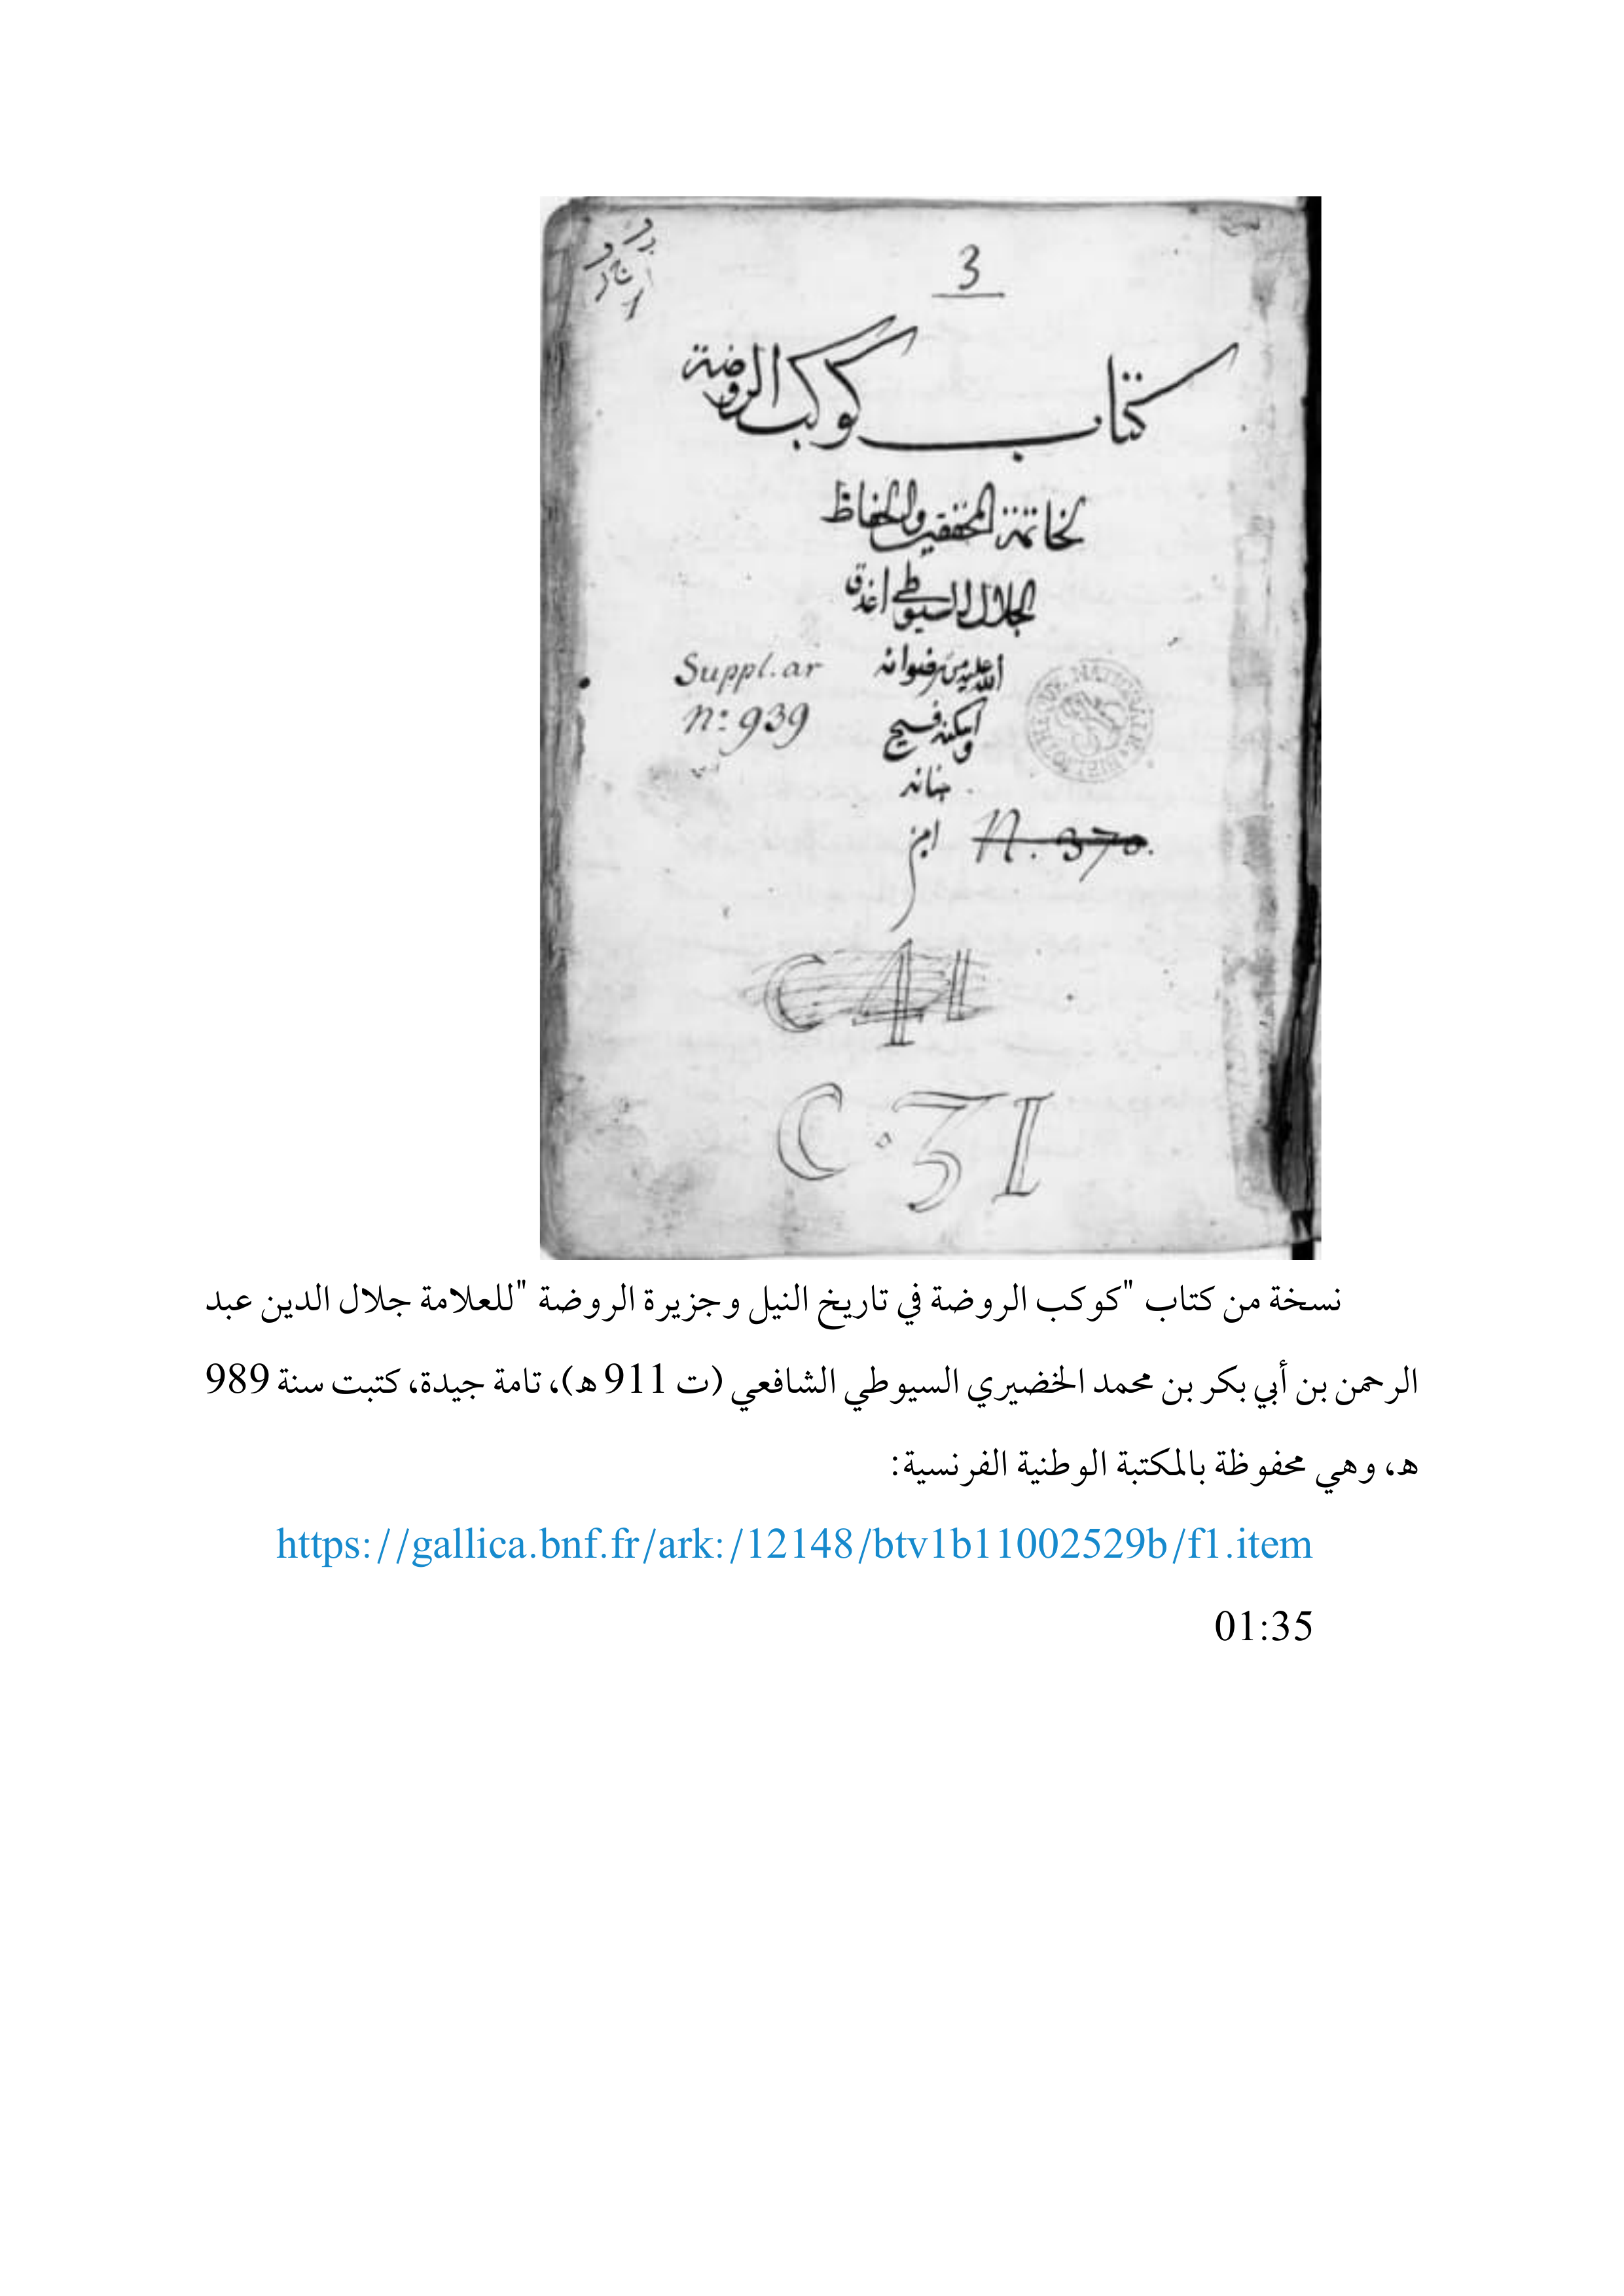 3
كتاب كوكب الروضة
لخاتمة المحققين والحفاظ
الجلال السيوطي اغدق
الله عليه من رضوانه
Suppl. ar
واسكنه فسيح
n.º 939
جنانه
N. 370.
C 41
C. 31
نسخة من كتاب "كوكب الروضة في تاريخ النيل وجزيرة الروضة "للعلامة جلال الدين عبد
الرحمن بن أبي بكر بن محمد الخضيري السيوطي الشافعي (ت 911 هـ)، تامة جيدة، كتبت سنة 989
هـ، وهي محفوظة بالمكتبة الوطنية الفرنسية:
https://gallica.bnf.fr/ark:/12148/btv1b11002529b/f1.item
01:35